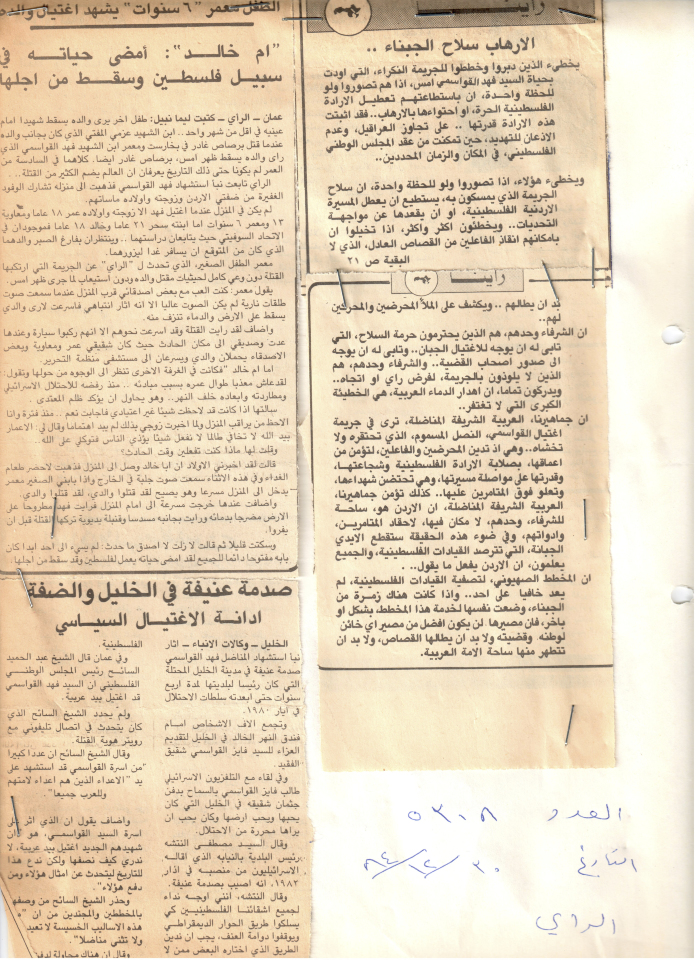 رأينا
الارهاب سلاح الجبناء ..
يخطىء الذين دبروا وخططوا للجريمة النكراء، التي اودت
بحياة السيد فهد القواسمي امس، اذا هم تصوروا ولو
للحظة واحدة، ان باستطاعتهم تعطيل الارادة
الفلسطينية الحرة، او احتواءها بالارهاب.. فقد اثبتت
هذه الارادة قدرتها .. على تجاوز العراقيل، وعدم
الاذعان للتهديد، حين تمكنت من عقد المجلس الوطني
الفلسطيني، في المكان والزمان المحددين..
ويخطىء هؤلاء، اذا تصوروا ولو للحظة واحدة، ان سلاح
الجريمة الذي يمسكون به، يستطيع ان يعطل المسيرة
الاردنية الفلسطينية، او ان يقعدها عن مواجهة
التحديات.. ويخطئون اكثر واكثر، اذا تخيلوا ان
بامكانهم انقاذ الفاعلين من القصاص العادل، الذي لا
البقية ص ٢١
رأينا
بد ان يطالهم .. ويكشف على الملأ المحرضين والمحركين
لهم..
ان الشرفاء وحدهم، هم الذين يحترمون حرمة السلاح، التي
تابى له ان يوجه للاغتيال الجبان.. وتابى له ان يوجه
الى صدور اصحاب القضية.. والشرفاء وحدهم، هم
الذين لا يلوذون بالجريمة، لفرض راي او اتجاه..
ويدركون تماما، ان اهدار الدماء العربية، هي الخطيئة
الكبرى التي لا تغتفر..
ان جماهيرنا، العربية الشريفة المناضلة، ترى في جريمة
اغتيال القواسمي، النصل المسموم، الذي تحتقره ولا
تخشاه.. وهي اذ تدين المحرضين والفاعلين، لتؤمن من
اعماقها، بصلابة الارادة الفلسطينية وشجاعتها،
وقدرتها على مواصلة مسيرتها، وهي تحتضن شهداءها،
وتعلو فوق المتامرين عليها.. كذلك تؤمن جماهيرنا،
العربية الشريفة المناضلة، ان الاردن هو، ساحة
للشرفاء، وحدهم، لا مكان فيها، لاحقاد المتامرين،
وادواتهم، وفي ضوء هذه الحقيقة ستقطع الايدي
الجبانة، التي تترصد القيادات الفلسطينية، والجميع
يعلمون، ان الاردن يفعل ما يقول..
ان المخطط الصهيوني، لتصفية القيادات الفلسطينية، لم
يعد خافيا على احد.. واذا كانت هناك زمرة من
الجبناء، وضعت نفسها لخدمة هذا المخطط، بشكل او
باخر، فان مصيرها، لن يكون افضل من مصير اي خائن
لوطنه وقضيته ولا بد ان يطالها القصاص، ولا بد ان
تتطهر منها ساحة الامة العربية.
الطفل معمر "٦ سنوات" يشهد اغتيال والده
"ام خالد": أمضى حياته في
سبيل فلسطين وسقط من اجلها
عمان - الراي - كتبت ليما نبيل: طفل اخر يرى والده يسقط شهيدا امام
عينيه في اقل من شهر واحد.. ابن الشهيد عزمي المفتي الذي كان بجانب والده
عندما قتل برصاص غادر في بخارست ومعمر ابن الشهيد فهد القواسمي الذي
راى والده يسقط ظهر امس، برصاص غادر ايضا. كلاهما في السادسة من
العمر لم يكونا حتى ذلك التاريخ يعرفان ان العالم يضم الكثير من القتلة..
الراي تابعت نبا استشهاد فهد القواسمي فذهبت الى منزله تشارك الوفود
الغفيرة من ضفتي الاردن وزوجته واولاده ماساتهم.
لم يكن في المنزل عندما اغتيل فهد الا زوجته واولاده عمر ١٨ عاما ومعاوية
١٣ ومعمر ٦ سنوات اما ابنته سحر ٢١ عاما وخالد ١٨ عاما فموجودان في
الاتحاد السوفيتي حيث يتابعان دراستهما .. وينتظران بفارغ الصبر والدهما
الذي كان من المتوقع ان يسافر غدا ليزورهما.
معمر الطفل الصغير، الذي تحدث ل "الراي" عن الجريمة التي ارتكبها
القتلة دون وعي كامل لحيثيات مقتل والده ودون استيعاب لما جرى ظهر امس.
يقول معمر: كنت العب مع بعض اصدقائي قرب المنزل عندما سمعت صوت
طلقات نارية لم يكن الصوت عاليا الا انه اثار انتباهي فاسرعت لارى والدي
يسقط على الارض والدماء تنزف منه.
واضاف لقد رايت القتلة وقد اسرعت نحوهم الا انهم ركبوا سيارة وعندها
عدت وصديقي الى مكان الحادث حيث كان شقيقي عمر ومعاوية وبعض
الاصدقاء يحملان والدي ويسرعان الى مستشفى منظمة التحرير.
اما ام خالد "فكانت في الغرفة الاخرى تنظر الى الوجوه من حولها وتقول:
لقد عاش معذبا طوال عمره بسبب مبادئه .. منذ رفضه للاحتلال الاسرائيلي
ومطاردته وابعاده خلف النهر.. وهو يحاول ان يؤكد ظلم المعتدى.
سالتها اذا كانت قد لاحظت شيئا غير اعتيادي فاجابت نعم .. منذ فترة وانا
الاحظ من يراقب المنزل ولما اخبرت زوجي بذلك لم يبد اهتماما وقال لي الاعمار
بيد الله لا تخافي طالما لا نفعل شيئا يؤذي الناس فتوكلي على الله..
وقلت لها ماذا كنت تفعلين وقت الحادث؟
قالت لقد اخبرني الاولاد ان ابا خالد وصل الى المنزل فذهبت لاحضر طعام
الغداء وفي هذه الاثناء سمعت صوت جلبة في الخارج واذا بابني الصغير معمر
يدخل الى المنزل مسرعا وهو يصيح لقد قتلوا والدي، لقد قتلوا والدي.
واضافت عندها خرجت مسرعة الى امام المنزل فرايت فهد مطروحا على
الارض مضرجا بدمائه ورايت بجانبه مسدسا وقنبلة يدوية تركها القتلة قبل ان
يفروا.
وسكتت قليلا ثم قالت لا زلت لا اصدق ما حدث: لم يسيء الى احد ابدا كان
بابه مفتوحا دائما للجميع لقد امضى حياته يعمل لفلسطين وقد سقط من اجلها
صدمة عنيفة في الخليل والضفة
ادانة الاغتيال السياسي
الخليل - وكالات الانباء - اثار
نبا استشهاد المناضل فهد القواسمي
صدمة عنيفة في مدينة الخليل المحتلة
التي كان رئيسا لبلديتها لمدة اربع
سنوات حتى ابعدته سلطات الاحتلال
في ايار ١٩٨٠.
وتجمع الاف الاشخاص امام
فندق النهر الخالد في الخليل لتقديم
العزاء للسيد فايز القواسمي شقيق
الفقيد.
وفي لقاء مع التلفزيون الاسرائيلي
طالب فايز القواسمي بالسماح بدفن
جثمان شقيقه في الخليل التي كان
يحبها ويحب ارضها وكان يحب ان
يراها محررة من الاحتلال.
وقال السيد مصطفى النتشه
رئيس البلدية بالنيابه الذي اقاله
الاسرائيليون من منصبه في اذار
١٩٨٣، انه اصيب بصدمة عنيفة.
وقال النتشه، انني اوجه نداء
لجميع اشقائنا الفلسطينيين كي
يسلكوا طريق الحوار الديمقراطي
ويوقفوا دوامة العنف، يجب ان ندين
الطريق الذي اختاره البعض ممن لا
الفلسطينية.
وفي عمان قال الشيخ عبد الحميد
السائح رئيس المجلس الوطني
الفلسطيني ان السيد فهد القواسمي
قد اغتيل بيد عربية.
ولم يحدد الشيخ السائح الذي
كان يتحدث في اتصال تليفوني مع
رويتر هوية القتلة.
وقال الشيخ السائح ان عددا كبيرا
"من اسرة القواسمي قد استشهد على
يد "الاعداء الذين هم اعداء لامتهم
وللعرب جميعا".
واضاف يقول ان الذي اثر على
اسرة السيد القواسمي، هو "ان
شهيدهم الجديد اغتيل بيد عربية، لا
ندري كيف نصفها ولكن ندع هذا
للتاريخ ليتحدث عن امثال هؤلاء ومن
دفع هؤلاء".
وحذر الشيخ السائح من وصفهم
بالمخططين والمجندين من ان "
هذه الاساليب الخسيسة لا تعيد
ولا تثني مناضلا".
وقال ان هناك محاولة لدفن
العدد ٥٣٠٨
التاريخ ٣٠/١٢/٨٤
الراي